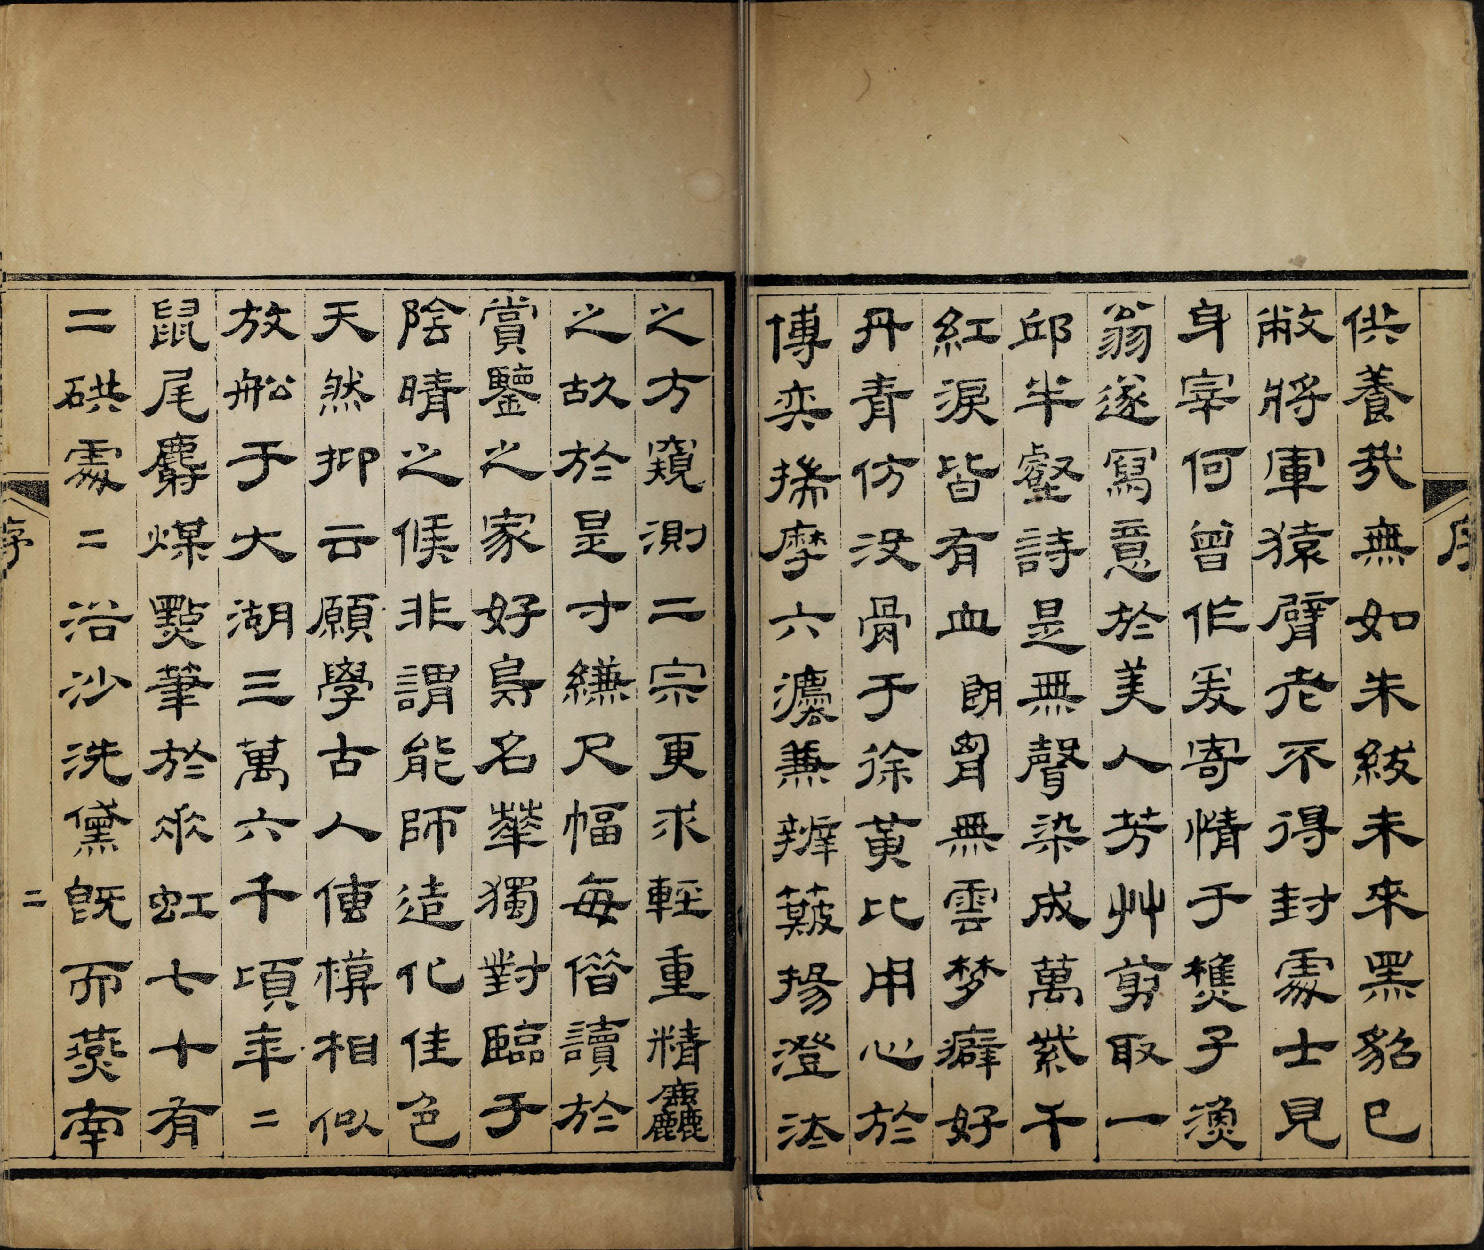 供養哉無如朱紱未來黑貂已
敝將軍猿臂老不得封處士見
身宰何曾作爰寄情于樵子漁
翁遂寫意於美人芳艸剪取一
邱半壑詩是無聲染成萬紫千
紅淚皆有血朗胷無雲夢癖好
丹青仿没骨于徐黄比用心於
博奕揣摩六灋兼辨皴擦澄法
之方窺測二宗更求輕重精麤
之故於是寸縑尺幅每借讀於
賞鑒之家好鳥名華獨對臨于
陰晴之候非謂能師造化佳色
天然抑云願學古人傳模相似
放船于大湖三萬六千頃年二
鼠尾麝煤點筆於垂虹七十有
二硔處二沿沙洗黛既而燕南
序
序
二